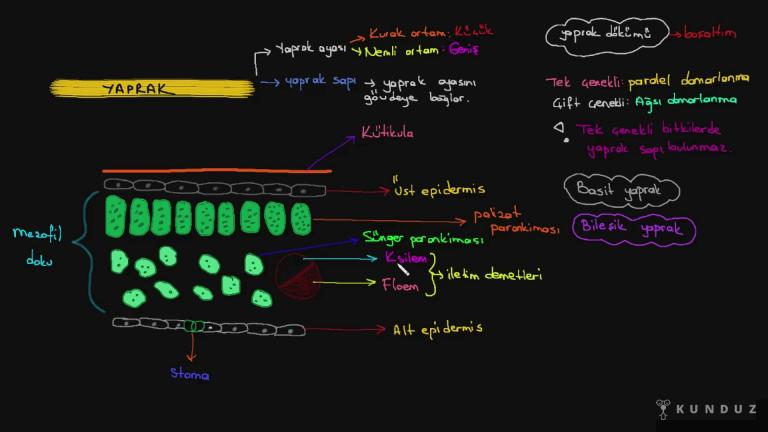 YAPRAK
Yaprak ayası
Kurak ortam: Küçük
Nemli ortam: Geniş
yaprak sapı → yaprak ayasını
gövdeye bağlar.
yaprak dökümü → boşaltım
Tek çenekli: paralel damarlanma
Çift çenekli: Ağsı damarlanma
Tek çenekli bitkilerde
yaprak sapı bulunmaz.
Basit yaprak
Bileşik yaprak
Kütikula
Üst epidermis
palizat
parankiması
Sünger parankiması
Ksilem
Floem
iletim demetleri
mezofil
doku
Alt epidermis
Stoma
KUNDUZ